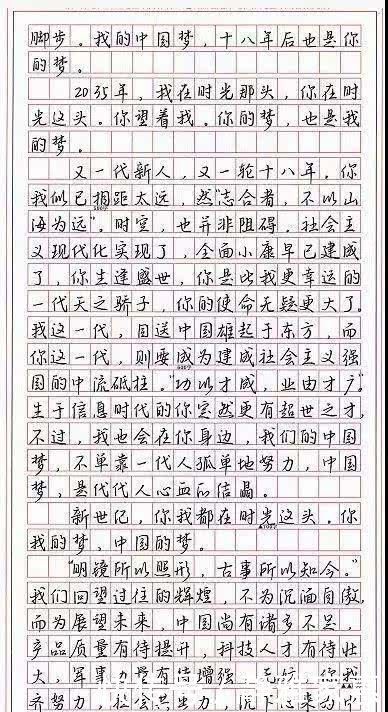 脚步。我的中国梦，十八年后也是你
的梦。
2035年，我在时光那头，你在时
光这头。你望着我。你的梦，也是我
的梦。
又一代新人，又一轮十八年。你
我似已相距太远，然“志合者，不以山
海为远”。时空，也并非阻碍。社会主
义现代化实现了，全面小康早已建成
了，你生逢盛世，你是比我更幸运的
一代天之骄子，你的使命无疑更大了。
我这一代，目送中国雄起于东方，而
你这一代，则要成为建成社会主义强
国的中流砥柱。“功以才成，业由才广。”
生于信息时代的你定然更有超世之才，
不过，我也会在你身边，我们的中国
梦，不单靠一代人孤单地努力，中国
梦，是代代人心血的结晶。
新世纪，你我都在时光这头。你
我的梦，中国的梦。
“明镜所以照形，古事所以知今。”
我们回望过往的辉煌，不为沉湎自傲，
而为展望未来，中国尚有诸多不足，
产品质量有待提升，科技人才有待壮
大，军事力量有待增强 你我
齐努力，社会共出力， 来的中